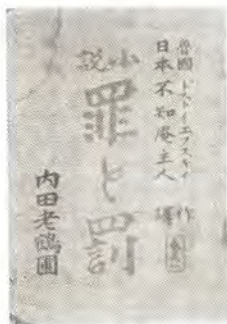 魯國 ドストイエフスキイ 作
日本 不知庵主人 譯
小説
罪と罰
内田老鶴圃